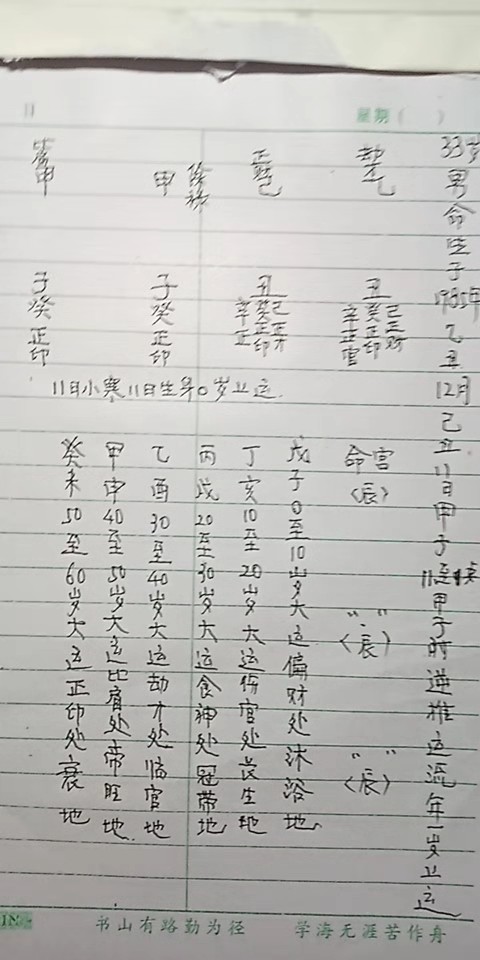 星期（ ）
33岁男命生于1985年乙丑12月己丑11日甲子11点甲子时逆推运流年一岁上运
劫才乙
丑
辛癸己
正正正
官印财
正财己
丑
辛癸己
正正正
印才
甲
子
癸
正
印
甲
子
癸
正
印
11日小寒11日生年0岁上运
命宫
〈辰〉
〈辰〉
〈辰〉
戊子0至10岁大运偏财处沐浴地
丁亥10至20岁大运伤官处长生地
丙戌20至30岁大运食神处冠带地
乙酉30至40岁大运劫才处临官地
甲申40至50岁大运比肩处帝旺地
癸未50至60岁大运正印处衰地
书山有路勤为径 学海无涯苦作舟